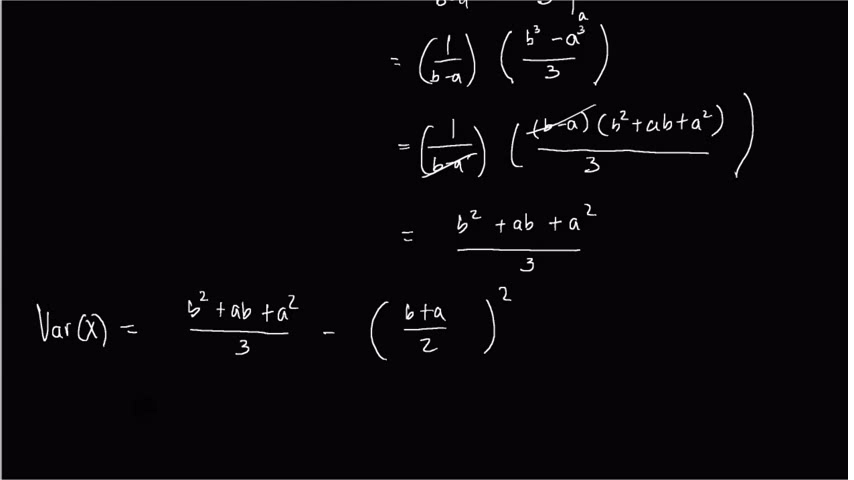 a
= (1/(b-a)) ((b³ - a³)/3)
= (1/(b-a)) (((b-a)(b² + ab + a²))/3)
= (b² + ab + a²)/3
Var(X) = (b² + ab + a²)/3 - ((b+a)/2)²